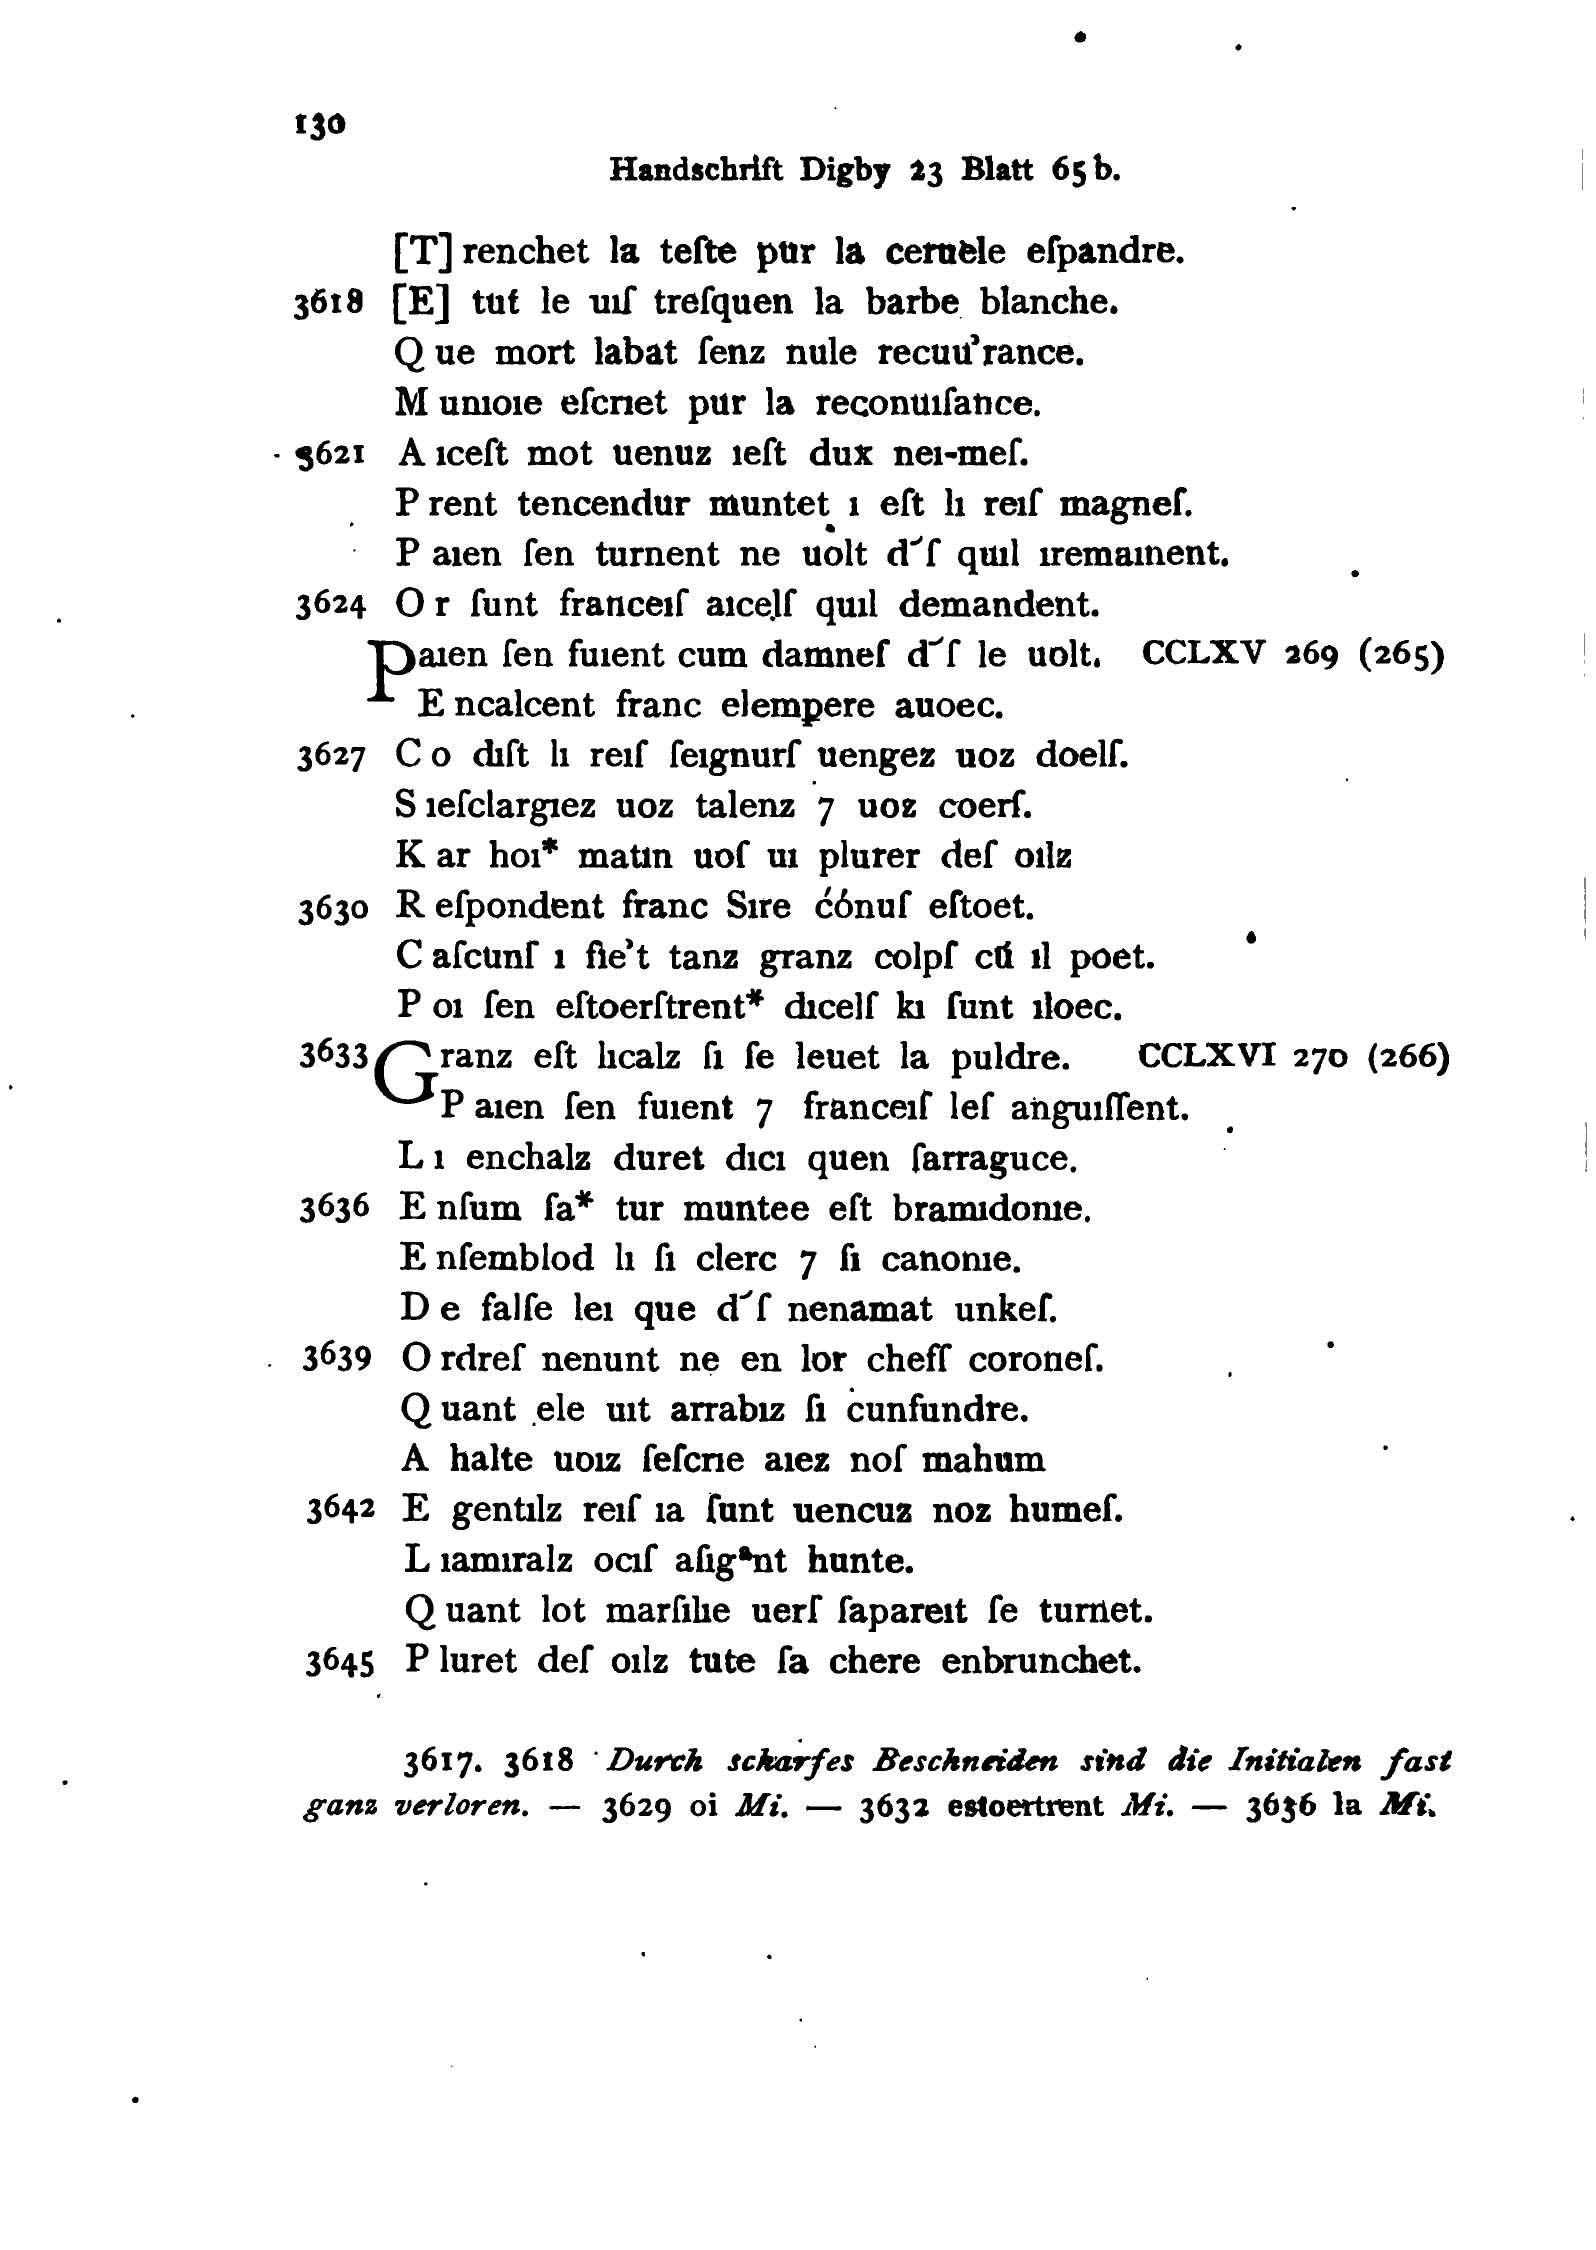 130
Handschrift Digby 23 Blatt 65b.
[T] renchet la teſte pur la ceruele eſpandre.
3618 [E] tut le uıſ treſquen la barbe blanche.
Q ue mort labat ſenz nule recuu̓rance.
M unıoıe eſcrıet pur la reconuıſance.
3621 A ıceſt mot uenuz ıeſt dux neı-meſ.
P rent tencendur muntet ı eſt lı reıſ magneſ.
P aıen ſen turnent ne uolt d ̃ſ quıl ıremaınent.
3624 O r ſunt franceıſ aıcelſ quıl demandent.
Paıen ſen fuıent cum damneſ d ̃ſ le uolt. CCLXV 269 (265)
E ncalcent franc elempere auoec.
3627 C o dıſt lı reıſ ſeıgnurſ uengez uoz doelſ.
S ıeſclargıez uoz talenz 7 uoz coerſ.
K ar hoı* matın uoſ uı plurer deſ oılz
3630 R eſpondent franc Sıre ćónuſ eſtoet.
C aſcunſ ı fıe’t tanz granz colpſ cū ıl poet.
P oı ſen eſtoerſtrent* dıcelſ kı ſunt ıloec.
3633 Granz eſt lıcalz ſı ſe leuet la puldre. CCLXVI 270 (266)
P aıen ſen fuıent 7 franceıſ leſ anguıſſent.
L ı enchalz duret dıcı quen ſarraguce.
3636 E nſum ſa* tur muntee eſt bramıdonıe.
E nſemblod lı ſı clerc 7 ſı canonıe.
D e falſe leı que d ̃ſ nenamat unkeſ.
3639 O rdreſ nenunt ne en lor cheſſ coroneſ.
Q uant ele uıt arrabız ſı cunfundre.
A halte uoız ſeſcrıe aıez noſ mahum
3642 E gentılz reıſ ıa ſunt uencuz noz humeſ.
L ıamıralz ocıſ aſıgᵃnt hunte.
Q uant lot marſılıe uerſ ſapareıt ſe turnet.
3645 P luret deſ oılz tute ſa chere enbrunchet.
3617. 3618 Durch scharfes Beschneiden sind die Initialen fast
ganz verloren. — 3629 oi Mi. — 3632 estoertrent Mi. — 3636 la Mi.